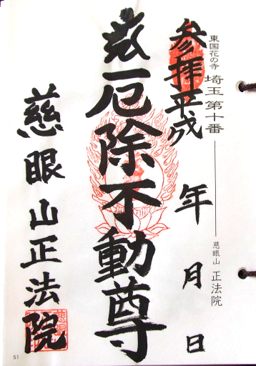 東国花の寺
埼玉第十番
慈眼山 正法院
参拝平成 年 月 日
厄除不動尊
慈眼山正法院
51